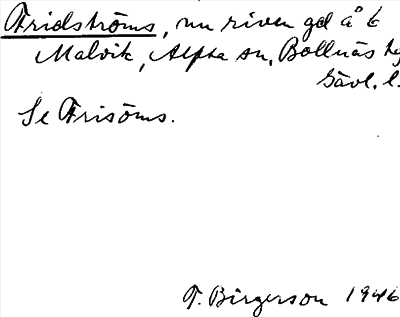 Fridströms, nu riven gd å 6
Malvik, Alfta sn, Bollnäs tg
Gävl. l.
Se Frisöms.
F. Birgerson 1946